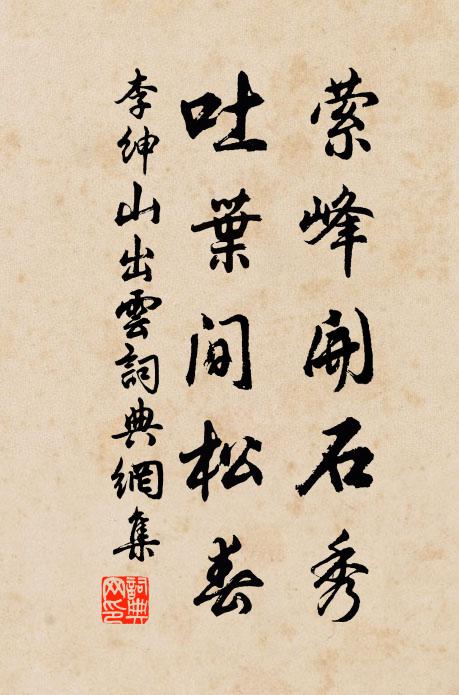 萦峰開石秀
吐葉間松春
李紳山出雲詞典網集
詞典網印